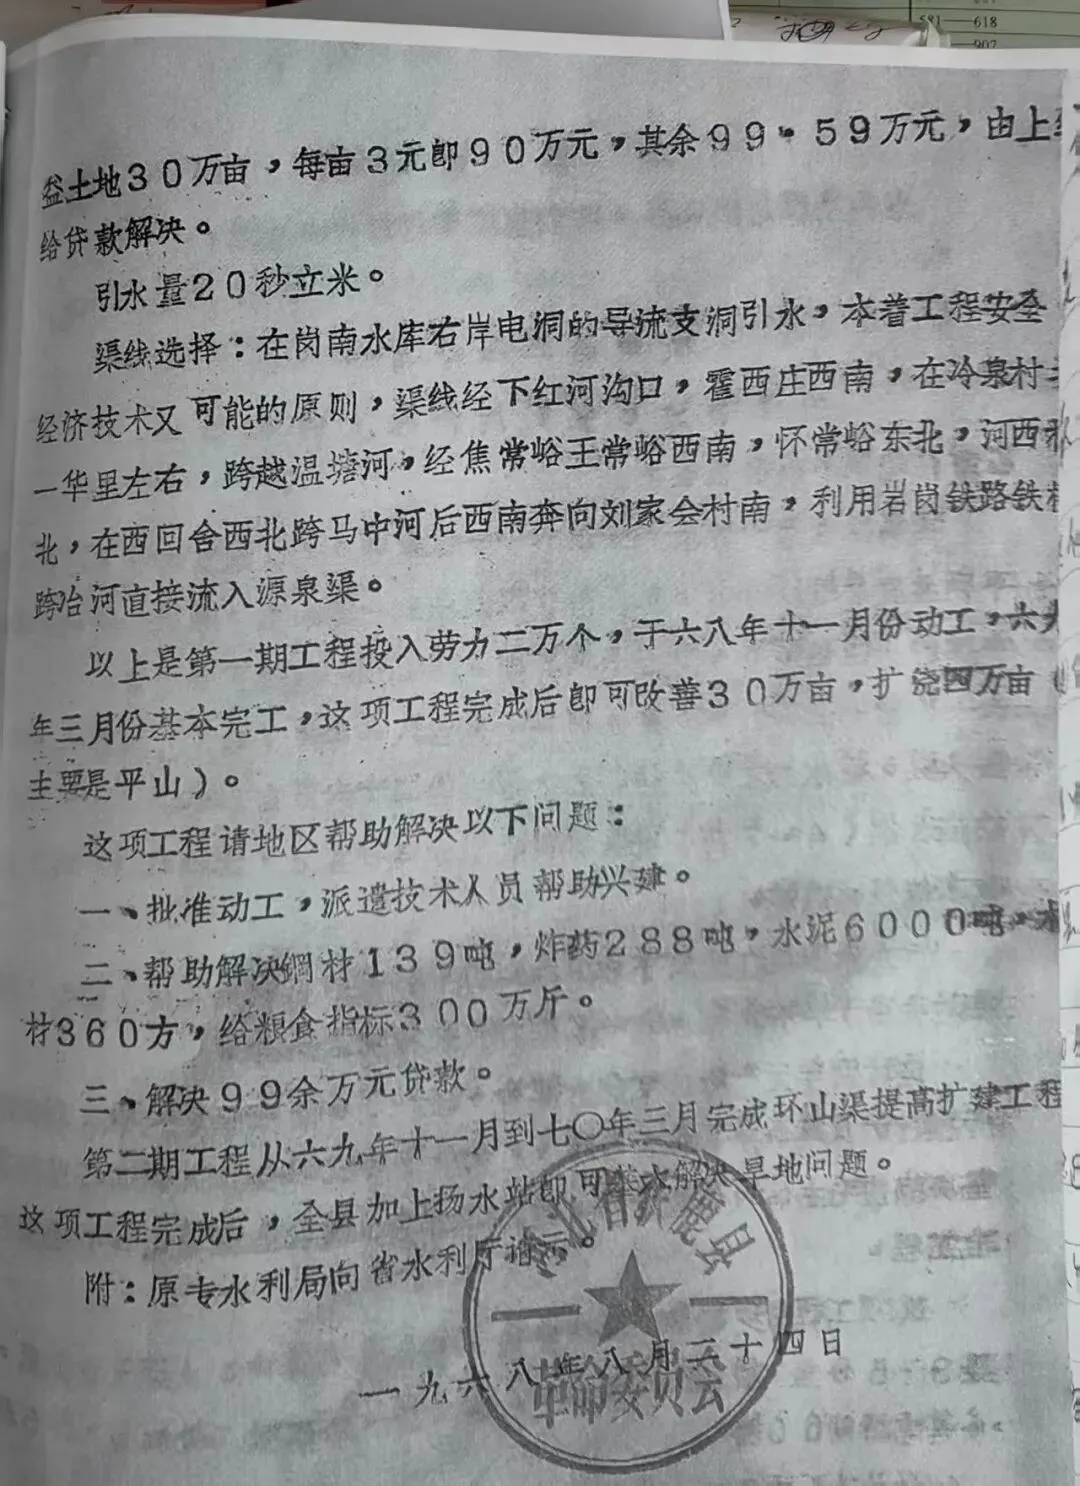 581—618
—907
益土地30万亩，每亩3元即90万元，其余99·59万元，由上
给贷款解决。
引水量20秒立米。
渠线选择：在岗南水库右岸电洞的导流支洞引水，本着工程安全
经济技术又可能的原则，渠线经下红河沟口，霍西庄西南，在冷泉村
一华里左右，跨越温塘河，经焦常峪王常峪西南，怀常峪东北，河西
北，在西回舍西北跨马中河后西南奔向刘家会村南，利用岩岗铁路铁
跨冶河直接流入源泉渠。
以上是第一期工程投入劳力二万个，于六八年十一月份动工，六
年三月份基本完工，这项工程完成后即可改善30万亩，扩浇四万亩（
主要是平山）。
这项工程请地区帮助解决以下问题：
一、批准动工，派遣技术人员帮助兴建。
二、帮助解决鋼材139吨，炸药288吨，水泥6000吨，木
材360方，给粮食指标300万斤。
三、解决99余万元贷款。
第二期工程从六九年十一月到七〇年三月完成环山渠提高扩建工程
这项工程完成后，全县加上扬水站即可基本解决旱地问题。
附：原专水利局向省水利厅请示。
一九六八年八月二十四日
河北省获鹿县
革命委员会